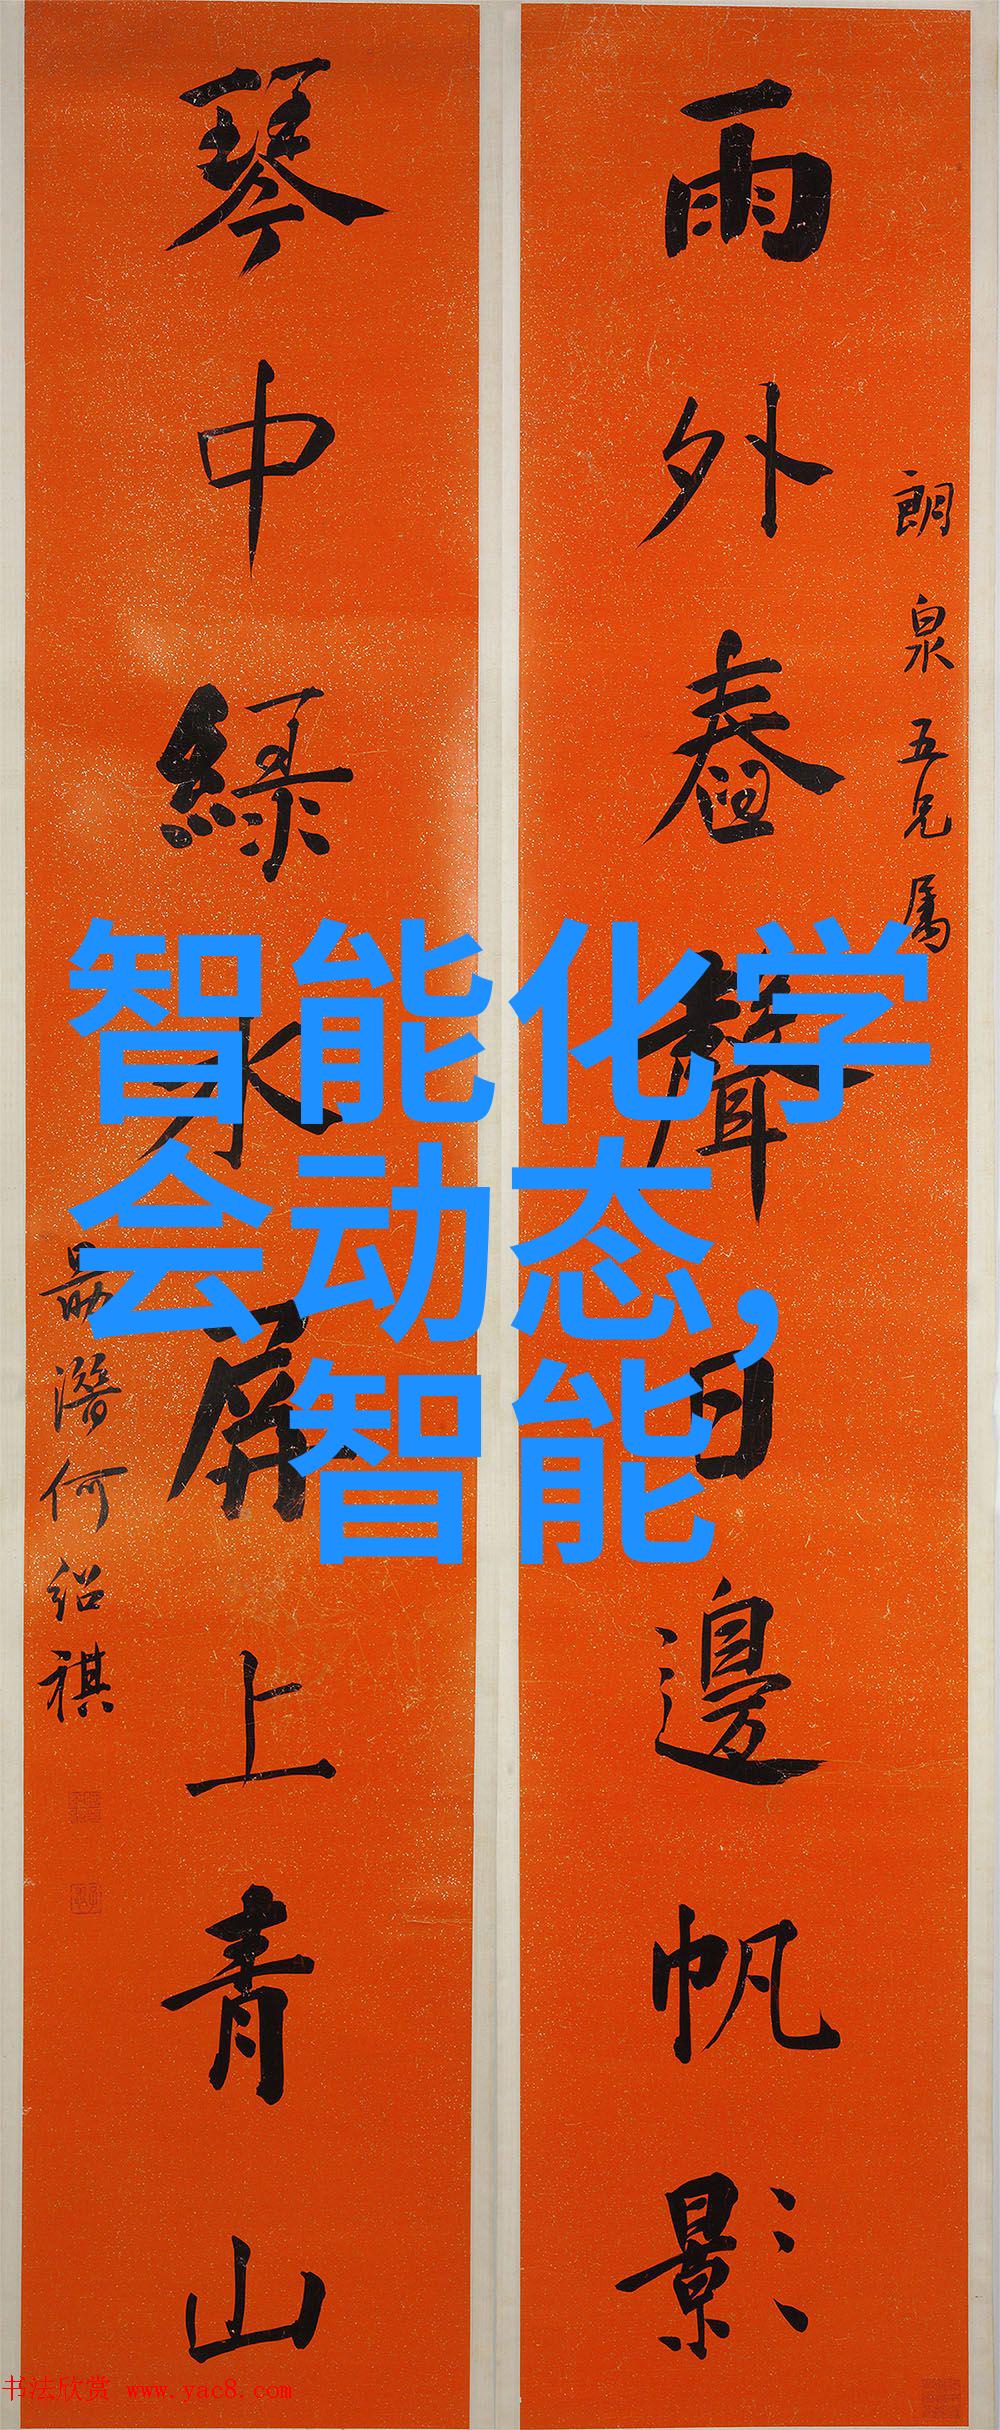 朗泉五兄属
雨外舂聲日邊帆影
琴中綠水屏上青山
勗潛何紹祺
智能化学
会动态,
智能
书法欣赏 www.yac8.com